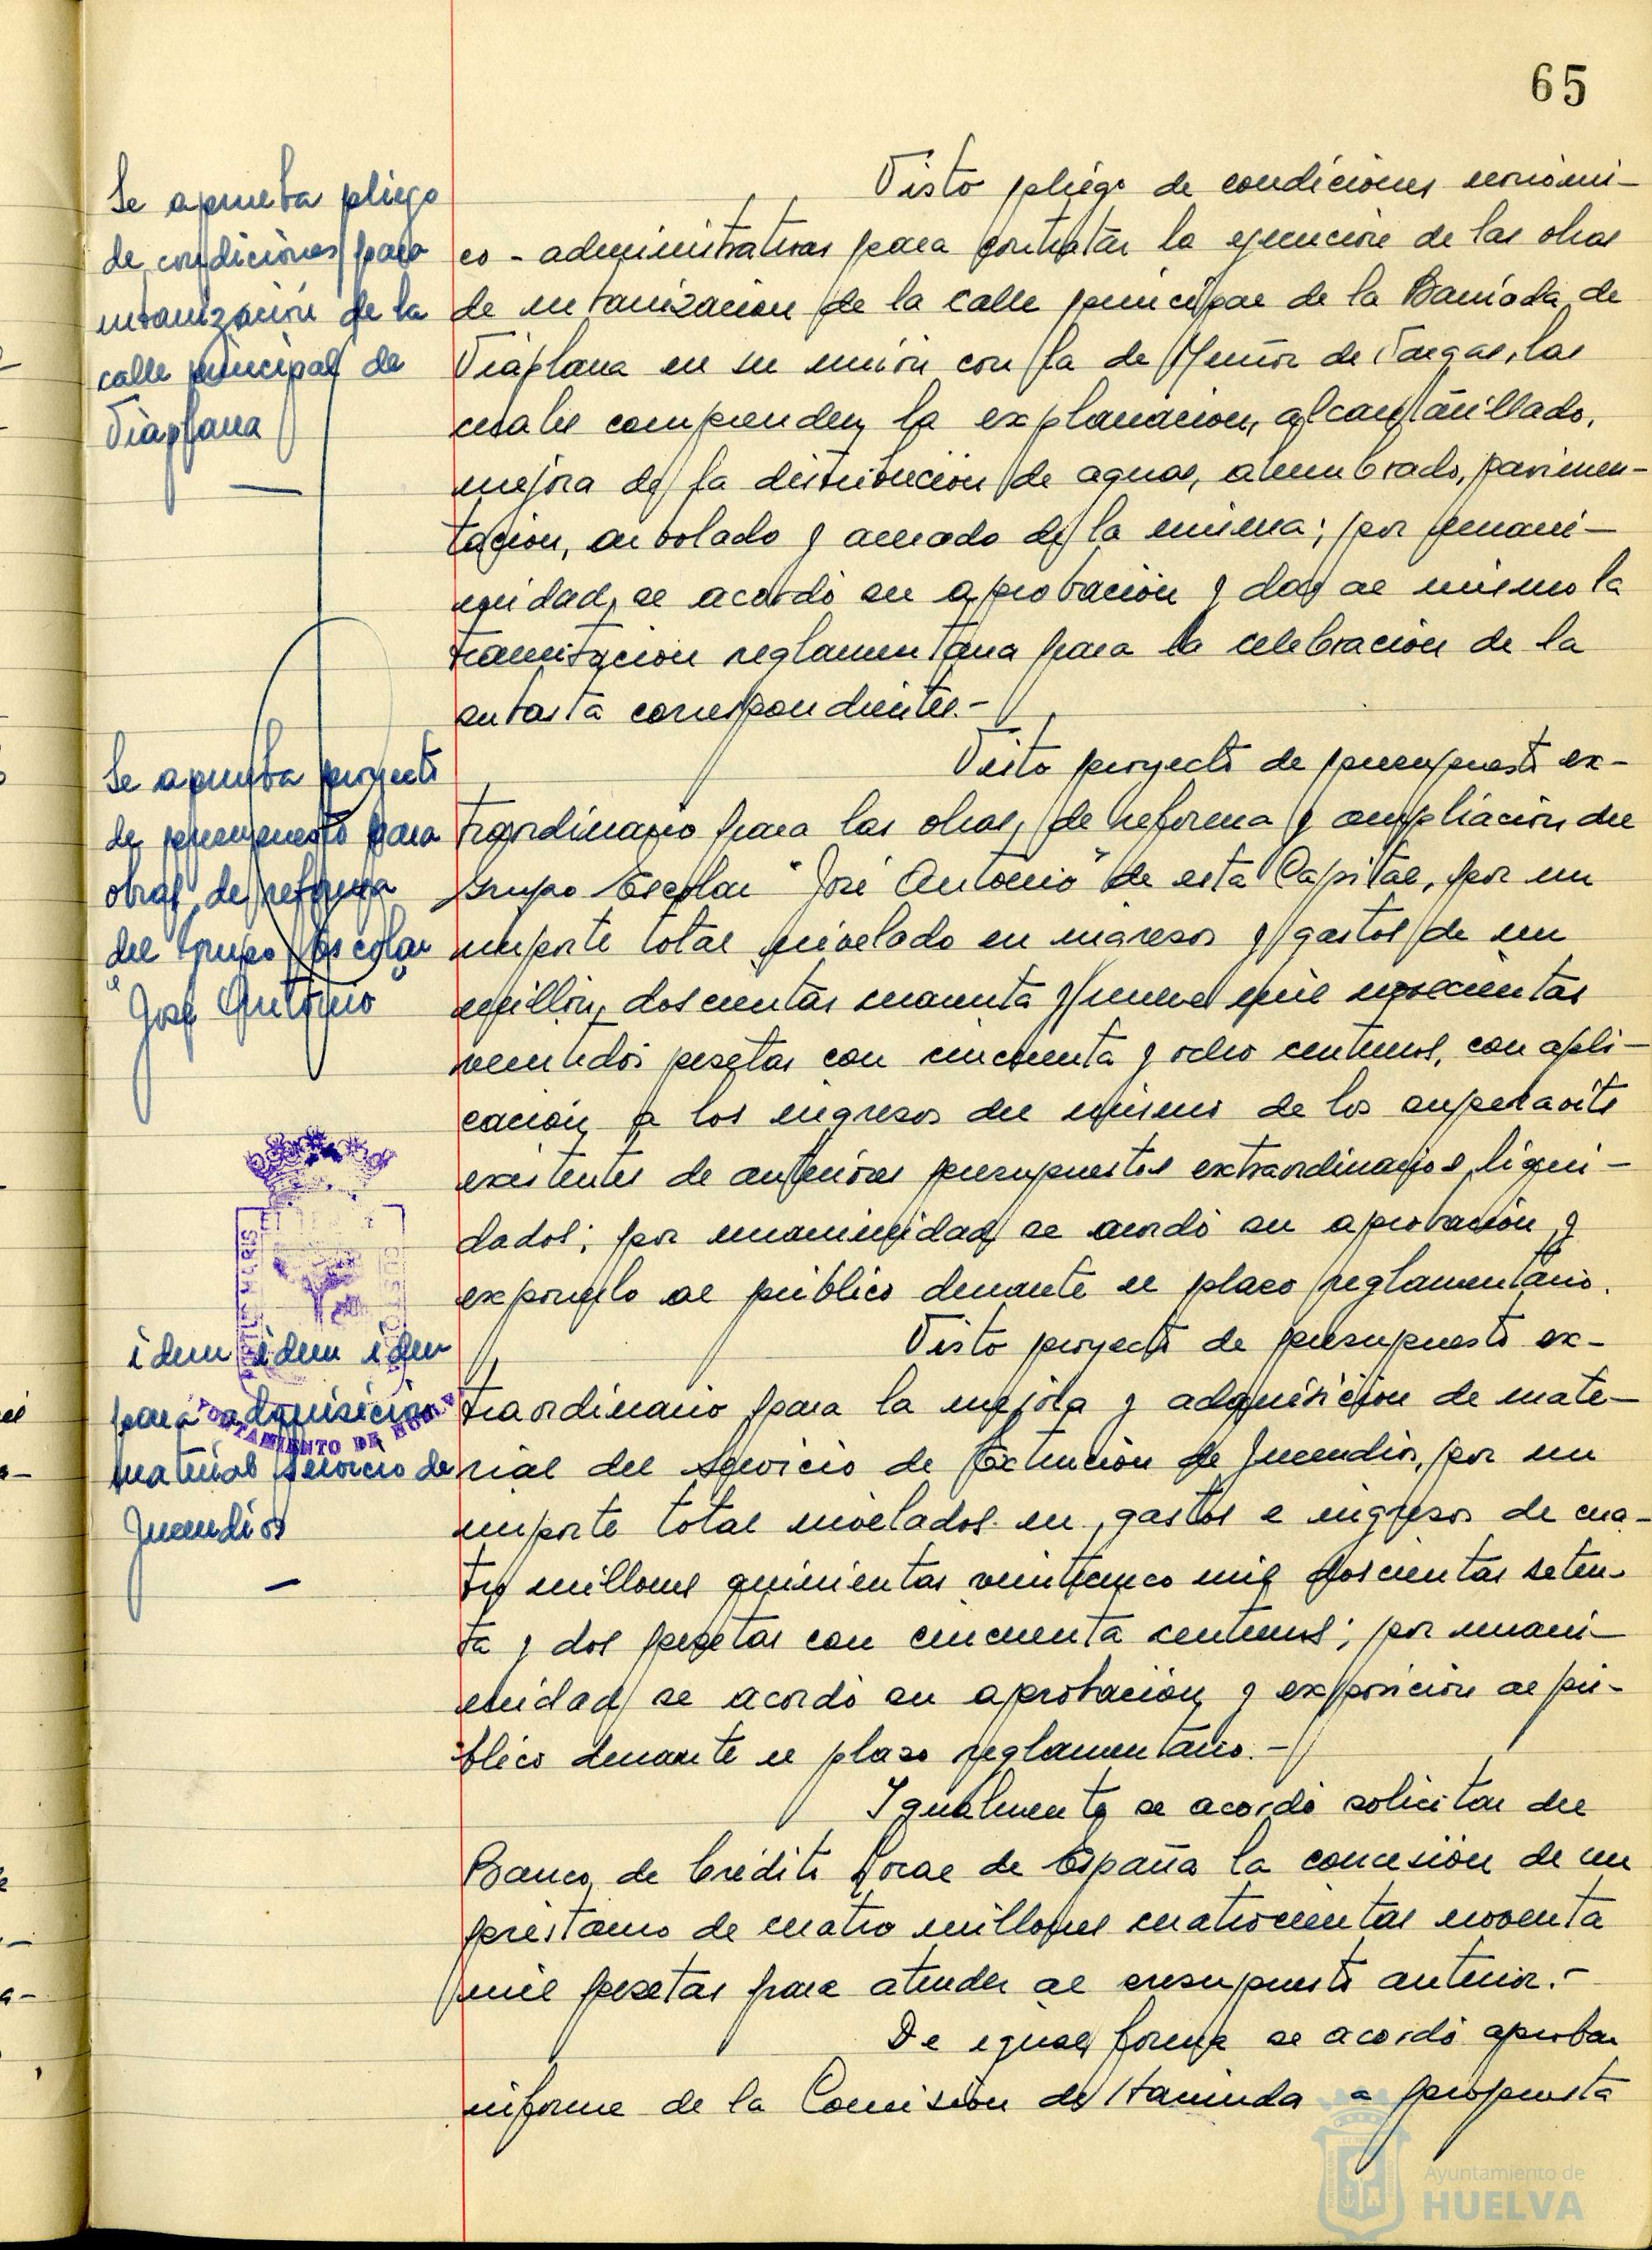 65
Se aprueba pliego
de condiciones para
urbanización de la
calle principal de
Viaplana
Visto pliego de condiciones económi-
co-administrativas para contratar la ejecución de las obras
de urbanización de la calle principal de la Barriada de
Viaplana en su unión con la de Muñoz de Vargas, las
cuales comprenden la explanación, alcantarillado,
mejora de la distribución de aguas, alumbrado, pavimen-
tación, arbolado y acerado de la misma; por unani-
midad, se acordó su aprobación y dar al mismo la
tramitación reglamentaria para la celebración de la
subasta correspondiente.-
Se aprueba proyecto
de presupuesto para
obras de reforma
del Grupo Escolar
"José Antonio"
Visto proyecto de presupuesto ex-
traordinario para las obras, de reforma y ampliación del
Grupo Escolar "José Antonio" de esta Capital, por un
importe total nivelado en ingresos y gastos de un
millón, doscientas cuarenta y nueve mil novecientas
veintidós pesetas con cincuenta y ocho céntimos, con apli-
cación a los ingresos del mismo de los superavits
existentes de anteriores presupuestos extraordinarios, liqui-
dados; por unanimidad se acordó su aprobación y
exponerlo al público durante el plazo reglamentario.
PORTUS MARIS
ET CUSTODIA
AYUNTAMIENTO DE HUELVA
idem idem idem
para adquisición
material servicio de
Incendios
Visto proyecto de presupuesto ex-
traordinario para la mejora y adquisición de mate-
rial del Servicio de Extinción de Incendios, por un
importe total nivelados en, gastos e ingresos de cua-
tro millones quinientas veinticinco mil doscientas seten-
ta y dos pesetas con cincuenta céntimos; por unani-
midad se acordó su aprobación y exposición al pú-
blico durante el plazo reglamentario.-
Igualmente se acordó solicitar del
Banco de Crédito Local de España la concesión de un
préstamo de cuatro millones cuatrocientas noventa
mil pesetas para atender al presupuesto anterior.-
De igual forma se acordó aprobar
informe de la Comisión de Hacienda a propuesta
Ayuntamiento de
HUELVA